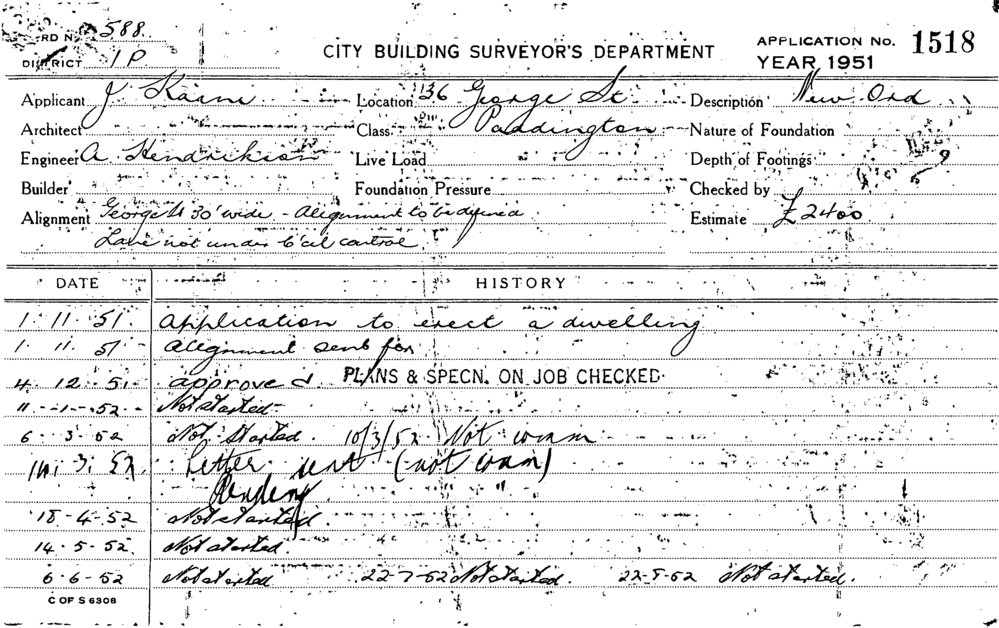 588
RD N
CITY BUILDING SURVEYOR'S DEPARTMENT
APPLICATION No. 1518
DISTRICT 1P
YEAR 1951
Applicant J Location 36 George St Description New Ord
Architect Class Paddington Nature of Foundation
Engineer A Hendrikson Live Load Depth of Footings
Builder Foundation Pressure Checked by
Alignment George St 30' wide - Alignment to be defined Estimate £2400
Lane not under C'cil control
DATE HISTORY
1. 11. 51. Application to erect a dwelling
1. 11. 51 Alignment sent for
4. 12. 51 approved PLANS & SPECN. ON JOB CHECKED.
11 - 1 - 52 Not started
6. 3. 52 Not started. 10/3/52 Not comm
3. 52 Letter sent (not comm)
Pending
18-4-52 Not started.
14. 5. 52. Not started.
6-6-52 Not started 22-7-52 Not started. Not started.
C OF S 6308